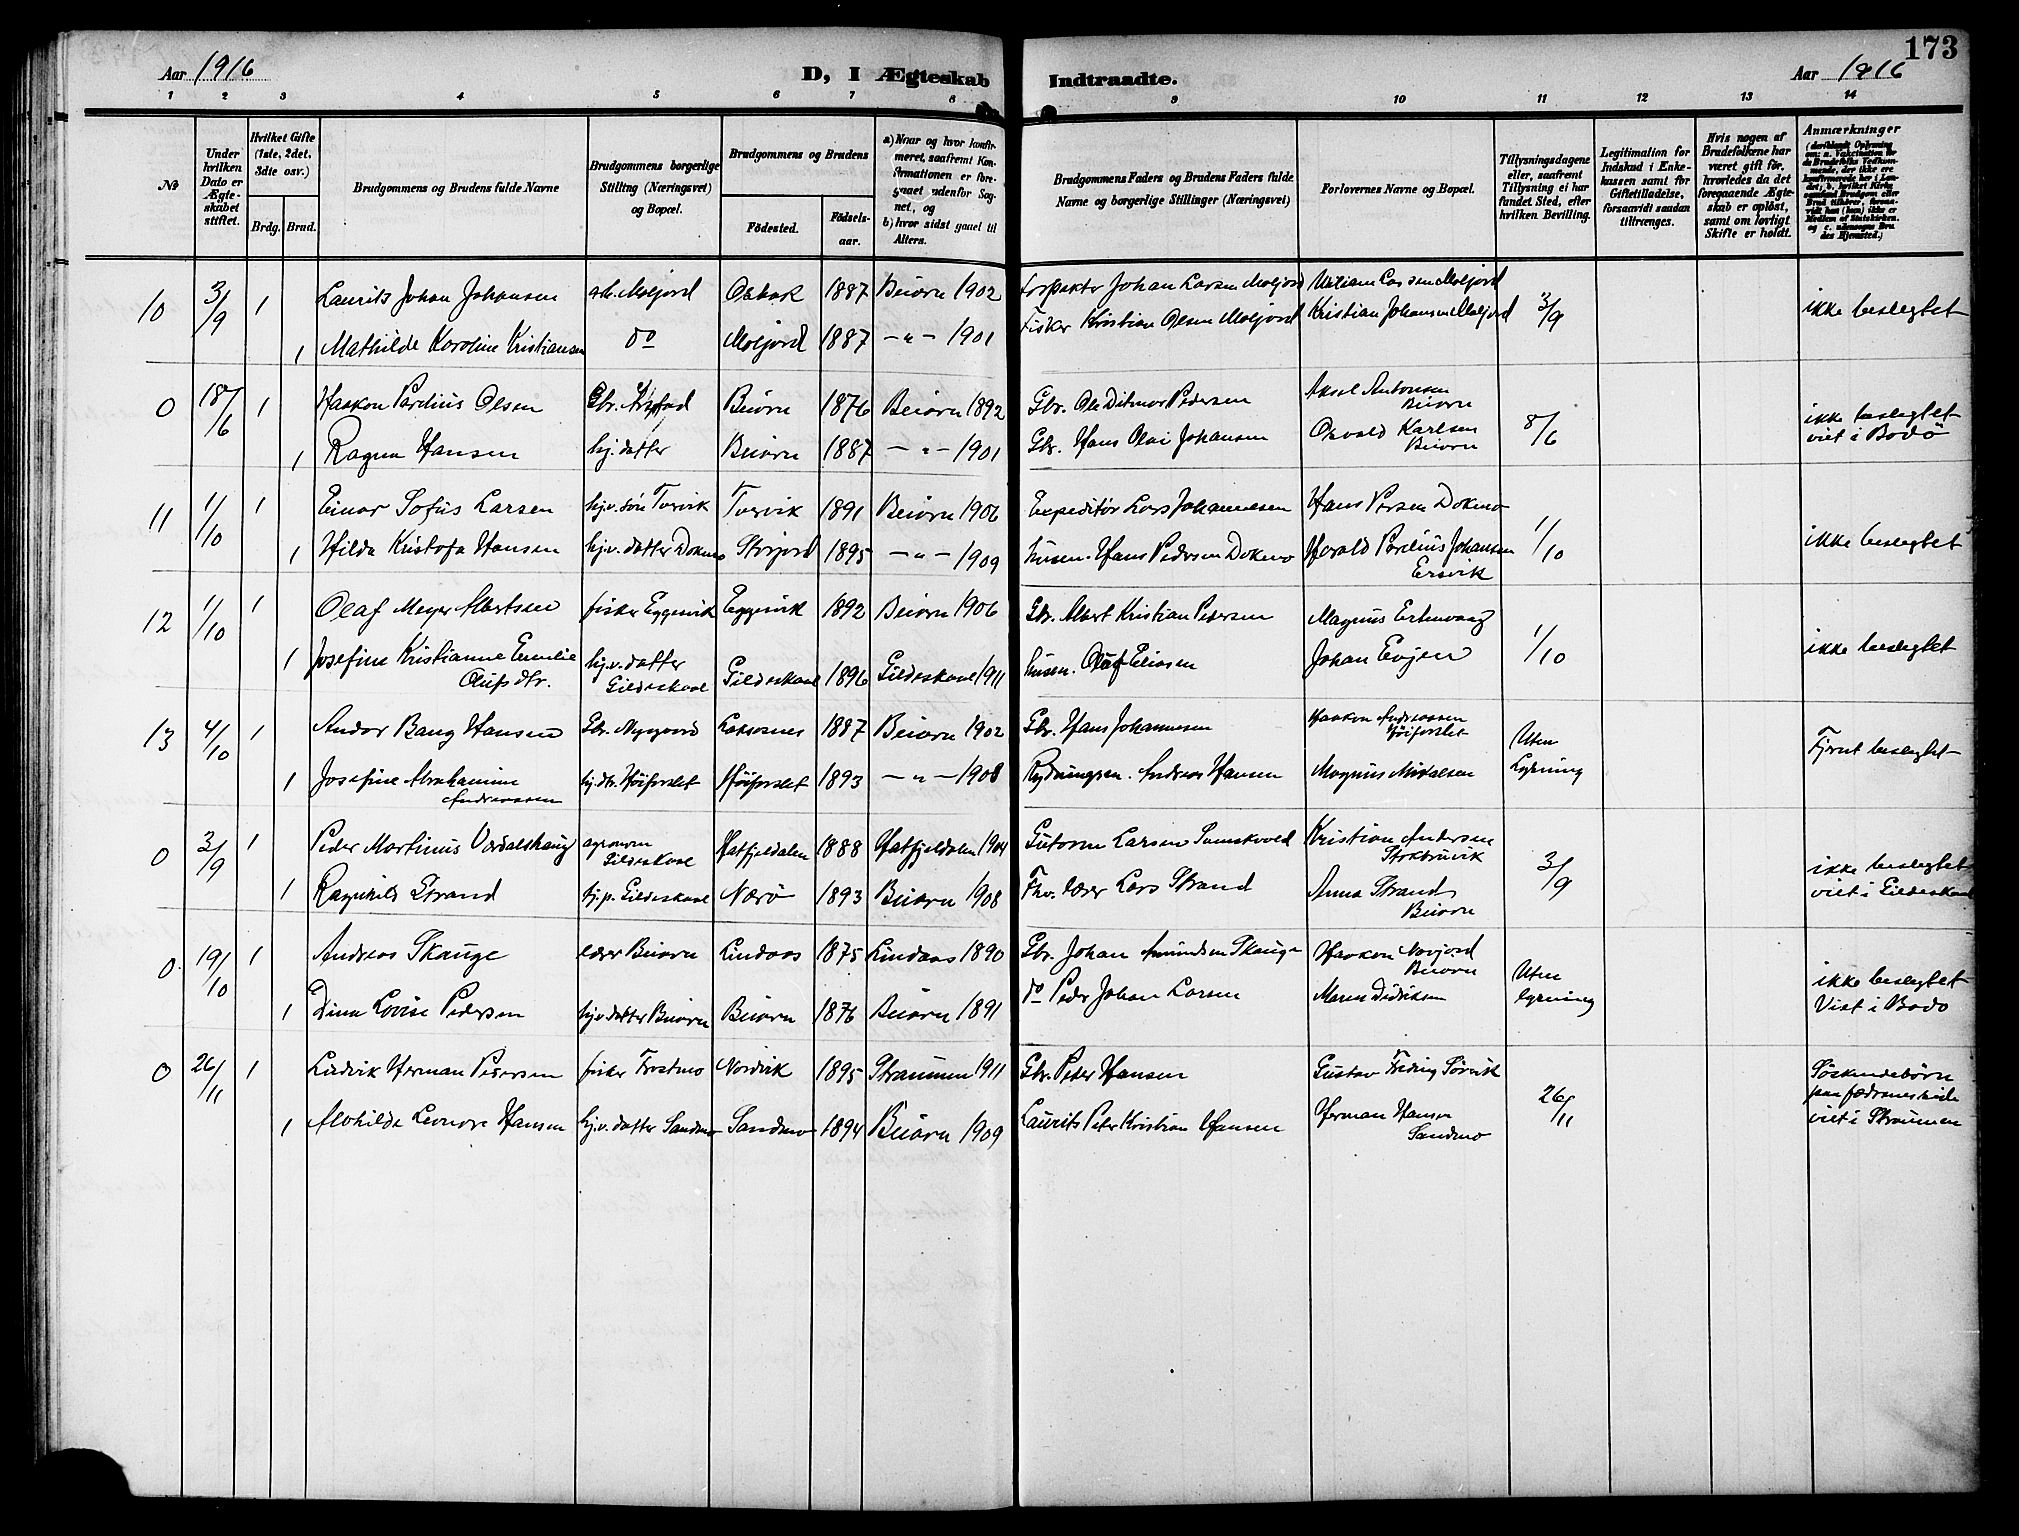 173
Aar 1916
D, I Ægteskab Indtraadte.
Aar 1916
1 2 3 4 5 6 7 8 9 10 11 12 13 14
№
Under hvilken Dato er Ægteskabet stiftet.
Hvilket Gifte (1ste, 2det, 3die osv.)
Brdg. Brud.
Brudgommens og Brudens fulde Navne
Brudgommens borgerlige Stilling (Næringsvei) og Bopæl.
Brudgommens og Brudens
Fødested.
Fødselsaar.
a) Naar og hvor konfirmeret, saafremt Konfirmationen er foregaaet udenfor Sognet, og
b) hvor sidst gaaet til Alters.
Brudgommens Faders og Brudens Faders fulde Navne og borgerlige Stillinger (Næringsvei)
Forlovernes Navne og Bopæl.
Tillysningsdagene eller, saafremt Tillysning ei har fundet Sted, efter hvilken Bevilling.
Legitimation for Indskud i Enkekassen samt for Giftetilladelse, forsaavidt saadan tiltrænges.
Hvis nogen af Brudefolkene har været gift før, hvorledes da det foregaaende Ægteskab er opløst, samt om lovligt Skifte er holdt.
Anmærkninger
10 3/9 1 Laurits Johan Johansen arb. Moljord Osbak 1887 Beiarn 1902 Johan Larsen Moljord Larsen Moljord 3/9 ikke beslegtet
1 Mathilde Karoline Kristiansen do Moljord 1887 — " — 1901 Fisker Kristian Olsen Moljord Kristian Johansen Moljord
0 18/6 1 Haakon Pardius Olsen Gbr. Beiarn 1876 Beiarn 1892 Gbr. Ole Ditmar Pedersen Aksel Antonsen Beiarn 8/6 ikke beslegtet viet i Bodø
1 Ragna Hansen hj. datter Beiarn 1887 — " — 1901 Gbr. Hans Olai Johansen Osvald Karlsen Beiarn
11 1/10 1 Einar Sofus Larsen hjv. søn Tvervik Tvervik 1891 Beiarn 1906 Expeditør Lars Johannesen Hans Persen Dokmo 1/10 ikke beslegtet
1 Hilda Kristofa Hansen hjv. datter Dokmo Storjord 1895 — " — 1909 husm. Hans Pedersen Dokmo Harald Pardius Johansen Ersvik
12 1/10 1 Olaf Meyer Albertsen fisker Eggesvik Eggesvik 1892 Beiarn 1906 Gbr. Albert Kristian Pedersen Magnus Ertenvaag 1/10 ikke beslegtet
1 Josefine Kristianne Emilie Olufsdtr. hj.v. datter Gildeskaal Gildeskaal 1896 Gildeskaal 1911 husm. Oluf Eliasen Johan Evjen
13 4/10 1 Andor Bang Hansen Gbr. Nygaard Laksosnes 1887 Beiarn 1902 Gbr. Hans Johannesen Haakon Andreassen Høiforslet Uten Lysning Fjernt beslegtet
1 Josefine Abrahamine Andreassen hj. dtr. Høiforslet Høiforslet 1893 — " — 1908 Rydningsm. Andreas Hansen Magnus Mikalsen
0 3/9 1 Peder Martinus Vardalshaug agronom Gildeskaal Hatfjeldalen 1888 Hatfjeldalen 1904 Guttorm Larsen Kristian Andersen 3/9 ikke beslegtet viet i Gildeskaal
1 Ragnhild Strand hj. p. Gildeskaal Nærø 1893 Beiarn 1908 Fhv. lærer Lars Strand Anna Strand Beiarn
0 19/10 1 Andreas Skauge lærer Beiarn Lindaas 1875 Lindaas 1890 Gbr. Johan Amundsen Skauge Haakon Navjord Beiarn Uten lysning ikke beslegtet Viet i Bodø
1 Dina Lovise Pedersen hj.v. datter Beiarn Beiarn 1876 Beiarn 1891 do Peder Johan Larsen Maren Didriksen
0 26/11 1 Ludvik Herman Pedersen fisker Trostmo Nordvik 1895 Straumen 1911 Gbr. Peter Hansen Gustav Fredrig Sørvik 26/11 Søskendebørn paa fædreneside viet i Straumen
1 Alvhilde Leonore Hansen hj.v. datter Sandmo Sandmo 1894 Beiarn 1909 Laurits Peter Kristian Hansen Herman Hansen Sandmo